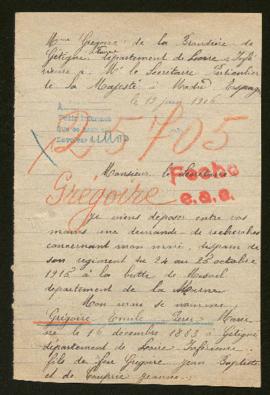 Mme Grégoire de la Brandière de
Gétigné département de Loire Infé
rieure à Mr le Secrétaire Particulier
de sa Majesté à Madrid Espagne
le 13 juin 1916
25705
Monsieur le Secrétaire
Fecho
e.a.e.
Grégoire
Je viens déposer entre vos
mains une demande de recherches
concernant mon mari, disparu de
son régiment le 24 au 25 octobre
1915 à la butte de Mesnil
département de la Marne.
Mon mari se nomme
Grégoire Emile Pierre Marie
né le 16 décembre 1883 à Gétigné
département de Loire Inférieure
fils de feu Grégoire Jean Baptiste
et de Jeanne.